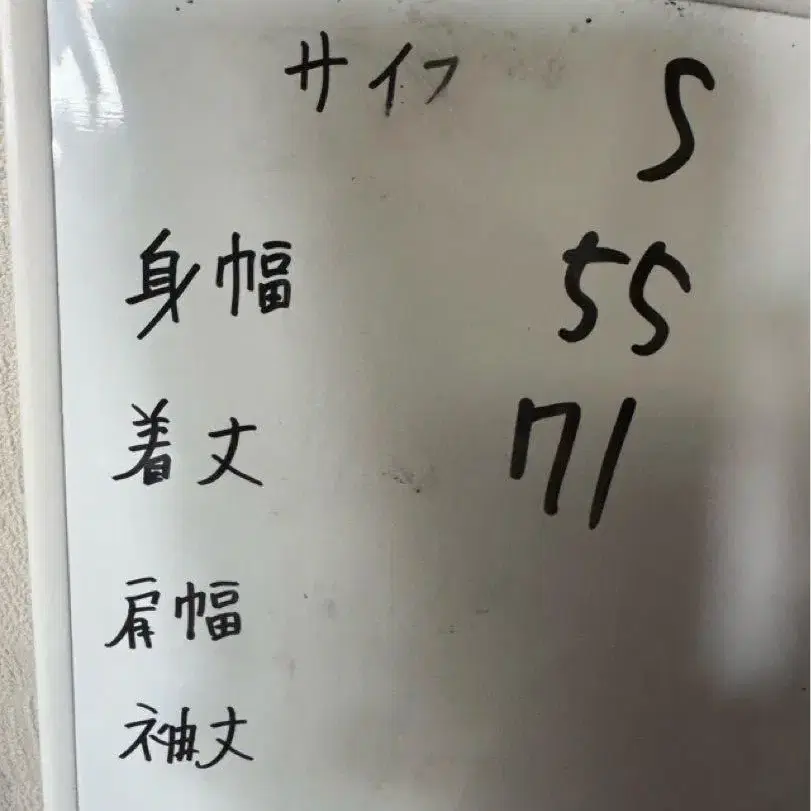 サイフ S
身幅 55
着丈 71
肩幅
袖丈